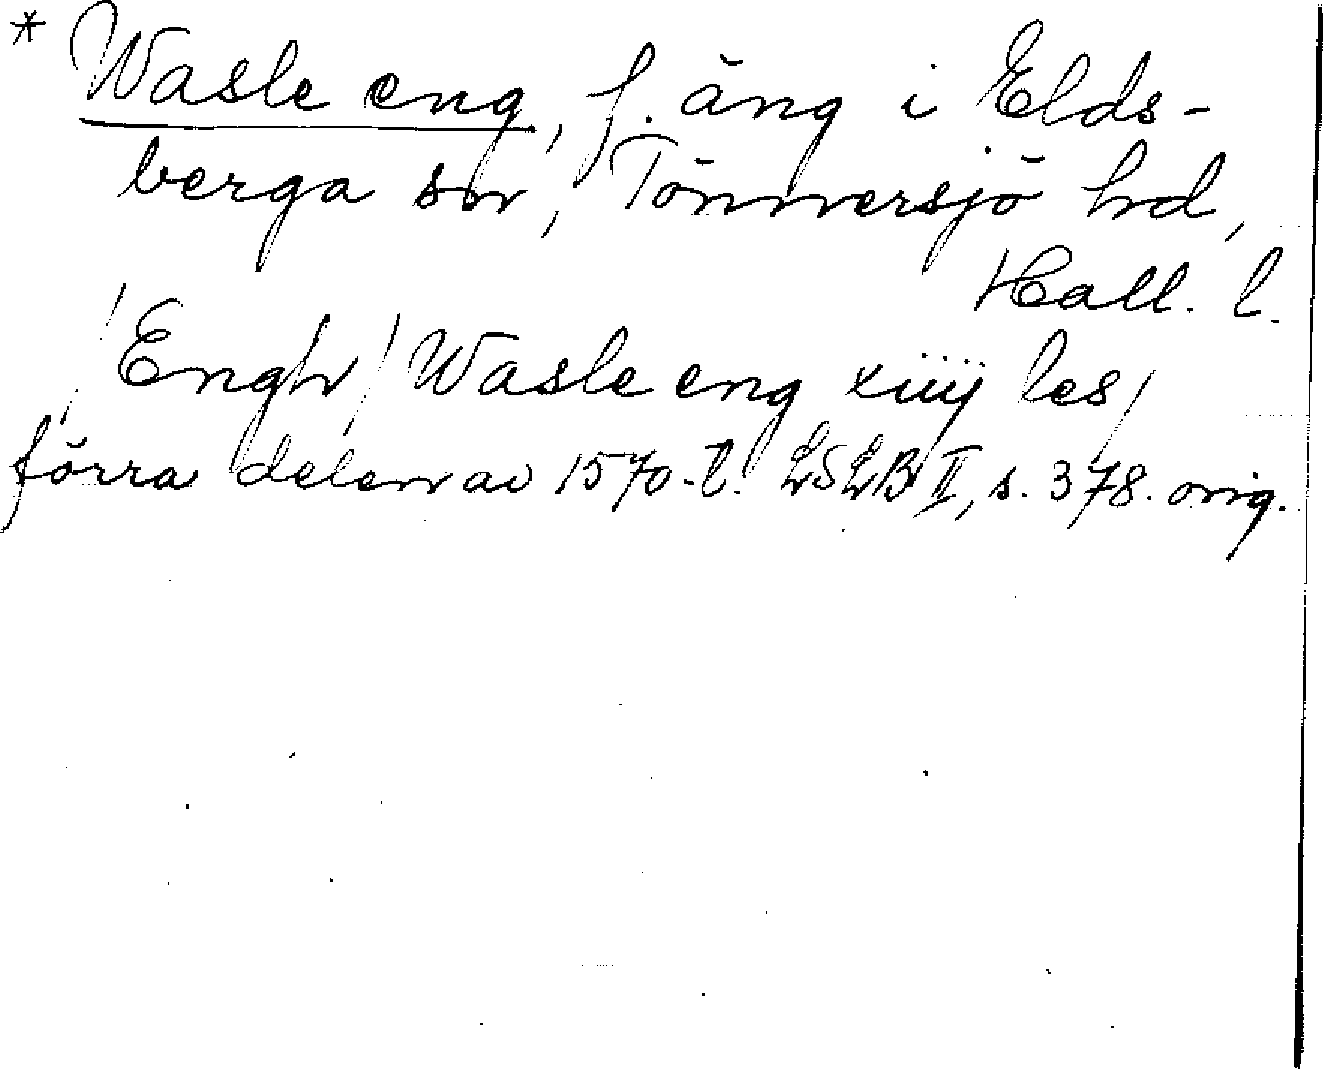 * Wasle eng, f. äng i Elds-
berga sn, Tönnersjö hd,
Hall. l.
/Engh/ Wasle eng xiiij les/
förra delen av 1570-t. LSLB II, s. 378. orig.